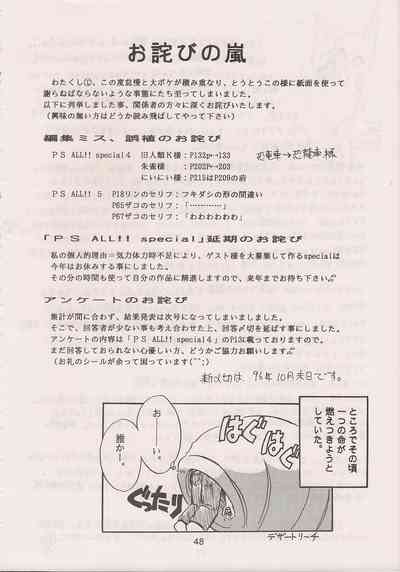 お詫びの嵐
わたくし①、この度怠慢と大ボケが積み重なり、とうとうこの様に紙面を使って
謝らねばならないような事態にたち至ってしまいました。
以下に列挙しました事、関係者の方々に深くお詫びいたします。
(興味の無い方はどうか読み飛ばしてやって下さい)
編集ミス、誤植のお詫び
PS ALL!! special4 旧人類K様:P132p→133
朱雀様 :P202P→203
にいにい様:P215はP209の前
PS ALL!! 5 P18リンのセリフ:フキダシの形の間違い
P65ザコのセリフ:「…………」
P67ザコのセリフ:「わわわわわわ」
「PS ALL!! special」延期のお詫び
私の個人的理由=気力体力時不足により、ゲスト様を大募集して作るspecialは
今年はお休みする事にしました。
その分の時間も使って自分の作品に精進しますので、来年までお待ち下さい。
アンケートのお詫び
集計が間に合わず、結果発表は次号になってしまいました。
そこで、回答者が少ない事も考え合わせた上、回答〆切を延ばす事にしました。
アンケートの内容は「PS ALL!! special4」のP13に載っておりますので、
まだ回答しておられない心優しい方、どうかご協力お願いします
(お礼のシールが余って困っています(^^;)
新〆切は '96年10月末日です。
ところでその頃
一つの命が
燃えつきようと
していた。
はぐはぐ
おーい。
誰かー。
ぐったり
デザートリーチ
48